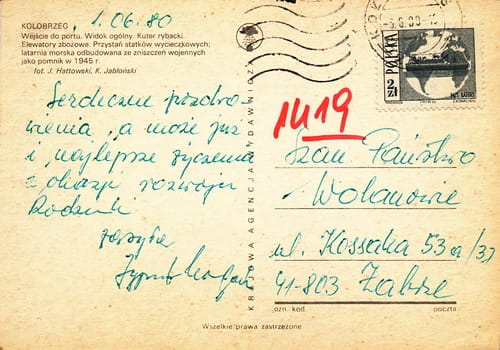 KOŁOBRZEG
1.06.80
Wejście do portu. Widok ogólny. Kuter rybacki.
Elewatory zbożowe. Przystań statków wycieczkowych;
latarnia morska odbudowana ze zniszczeń wojennych
jako pomnik w 1945 r.
fot. J. Hattowski, K. Jabłoński
Serdeczne pozdro-
wienia, a może już
i najlepsze życzenia
z okazji rozwoju
Rodzinki
KRAJOWA AGENCJA WYDAWNICZA
POLSKA
2 ZŁ
1419
Szan. Państwo
Wolanowie
ul. Kossaka 53a/3
41-803 Zabrze
ozn. kod.
poczta
Wszelkie prawa zastrzeżone